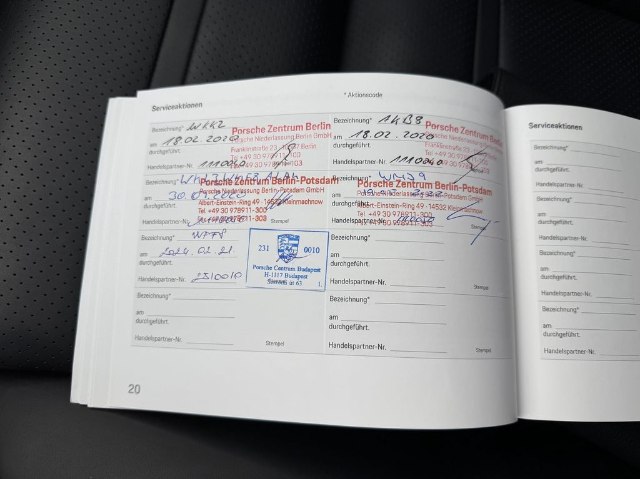 * Aktionscode
Serviceaktionen
Bezeichnung* WKK2
am 18.02.2020
durchgeführt.
Handelspartner-Nr. 1110040
Porsche Zentrum Berlin
Porsche Niederlassung Berlin GmbH
Franklinstraße 23
Tel +49 30 978911-300
Bezeichnung* 1KB8
am 18.02.2020
durchgeführt.
Handelspartner-Nr. 1110040
Porsche Zentrum Berlin
Bezeichnung*
am
durchgeführt.
Handelspartner-Nr.
Porsche Zentrum Berlin-Potsdam
Porsche Niederlassung Berlin-Potsdam GmbH
Albert-Einstein-Ring 49 · 14532 Kleinmachnow
Tel. +49 30 978911-300
Stempel
Bezeichnung*
am
durchgeführt.
Handelspartner-Nr.
Porsche Zentrum Berlin-Potsdam
Porsche Niederlassung Berlin-Potsdam GmbH
Albert-Einstein-Ring 49 · 14532 Kleinmachnow
Tel. +49 30 978911-300
Fax +49 30 978911-303
Stempel
Bezeichnung*
am 2024.02.21.
durchgeführt.
Handelspartner-Nr. 2310010
231 0010
Porsche Centrum Budapest
H-1117 Budapest
Bezeichnung*
am
durchgeführt.
Handelspartner-Nr.
Stempel
Bezeichnung*
am
durchgeführt.
Handelspartner-Nr.
Stempel
Bezeichnung*
am
durchgeführt.
Handelspartner-Nr.
Stempel
20
Serviceaktionen
Bezeichnung*
am
durchgeführt.
Handelspartner-Nr.
Bezeichnung*
am
durchgeführt.
Handelspartner-Nr.
Bezeichnung*
am
durchgeführt.
Handelspartner-Nr.
Bezeichnung*
am
durchgeführt.
Handelspartner-Nr.